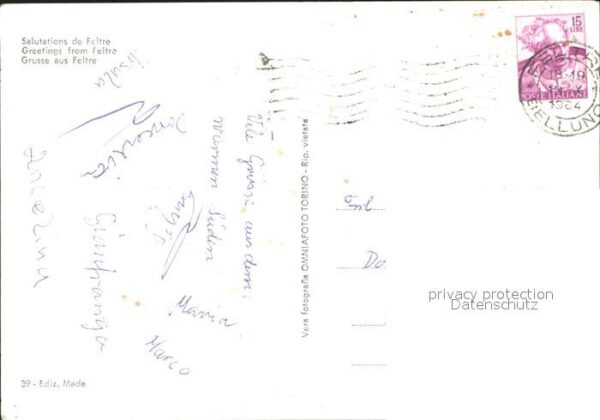 Salutations de Feltre
Greetings from Feltre
Grusse aus Feltre
Ursula
Gianfranca
Viele Grüsse aus dem
warmen Süden
Maria
Marco
Vera fotografia OMNIAFOTO TORINO - Rip. vietata
39 - Ediz. Made
15
LIRE
POSTE ITALIANE
FELTRE
18-19
1964
BELLUNO
privacy protection
Datenschutz